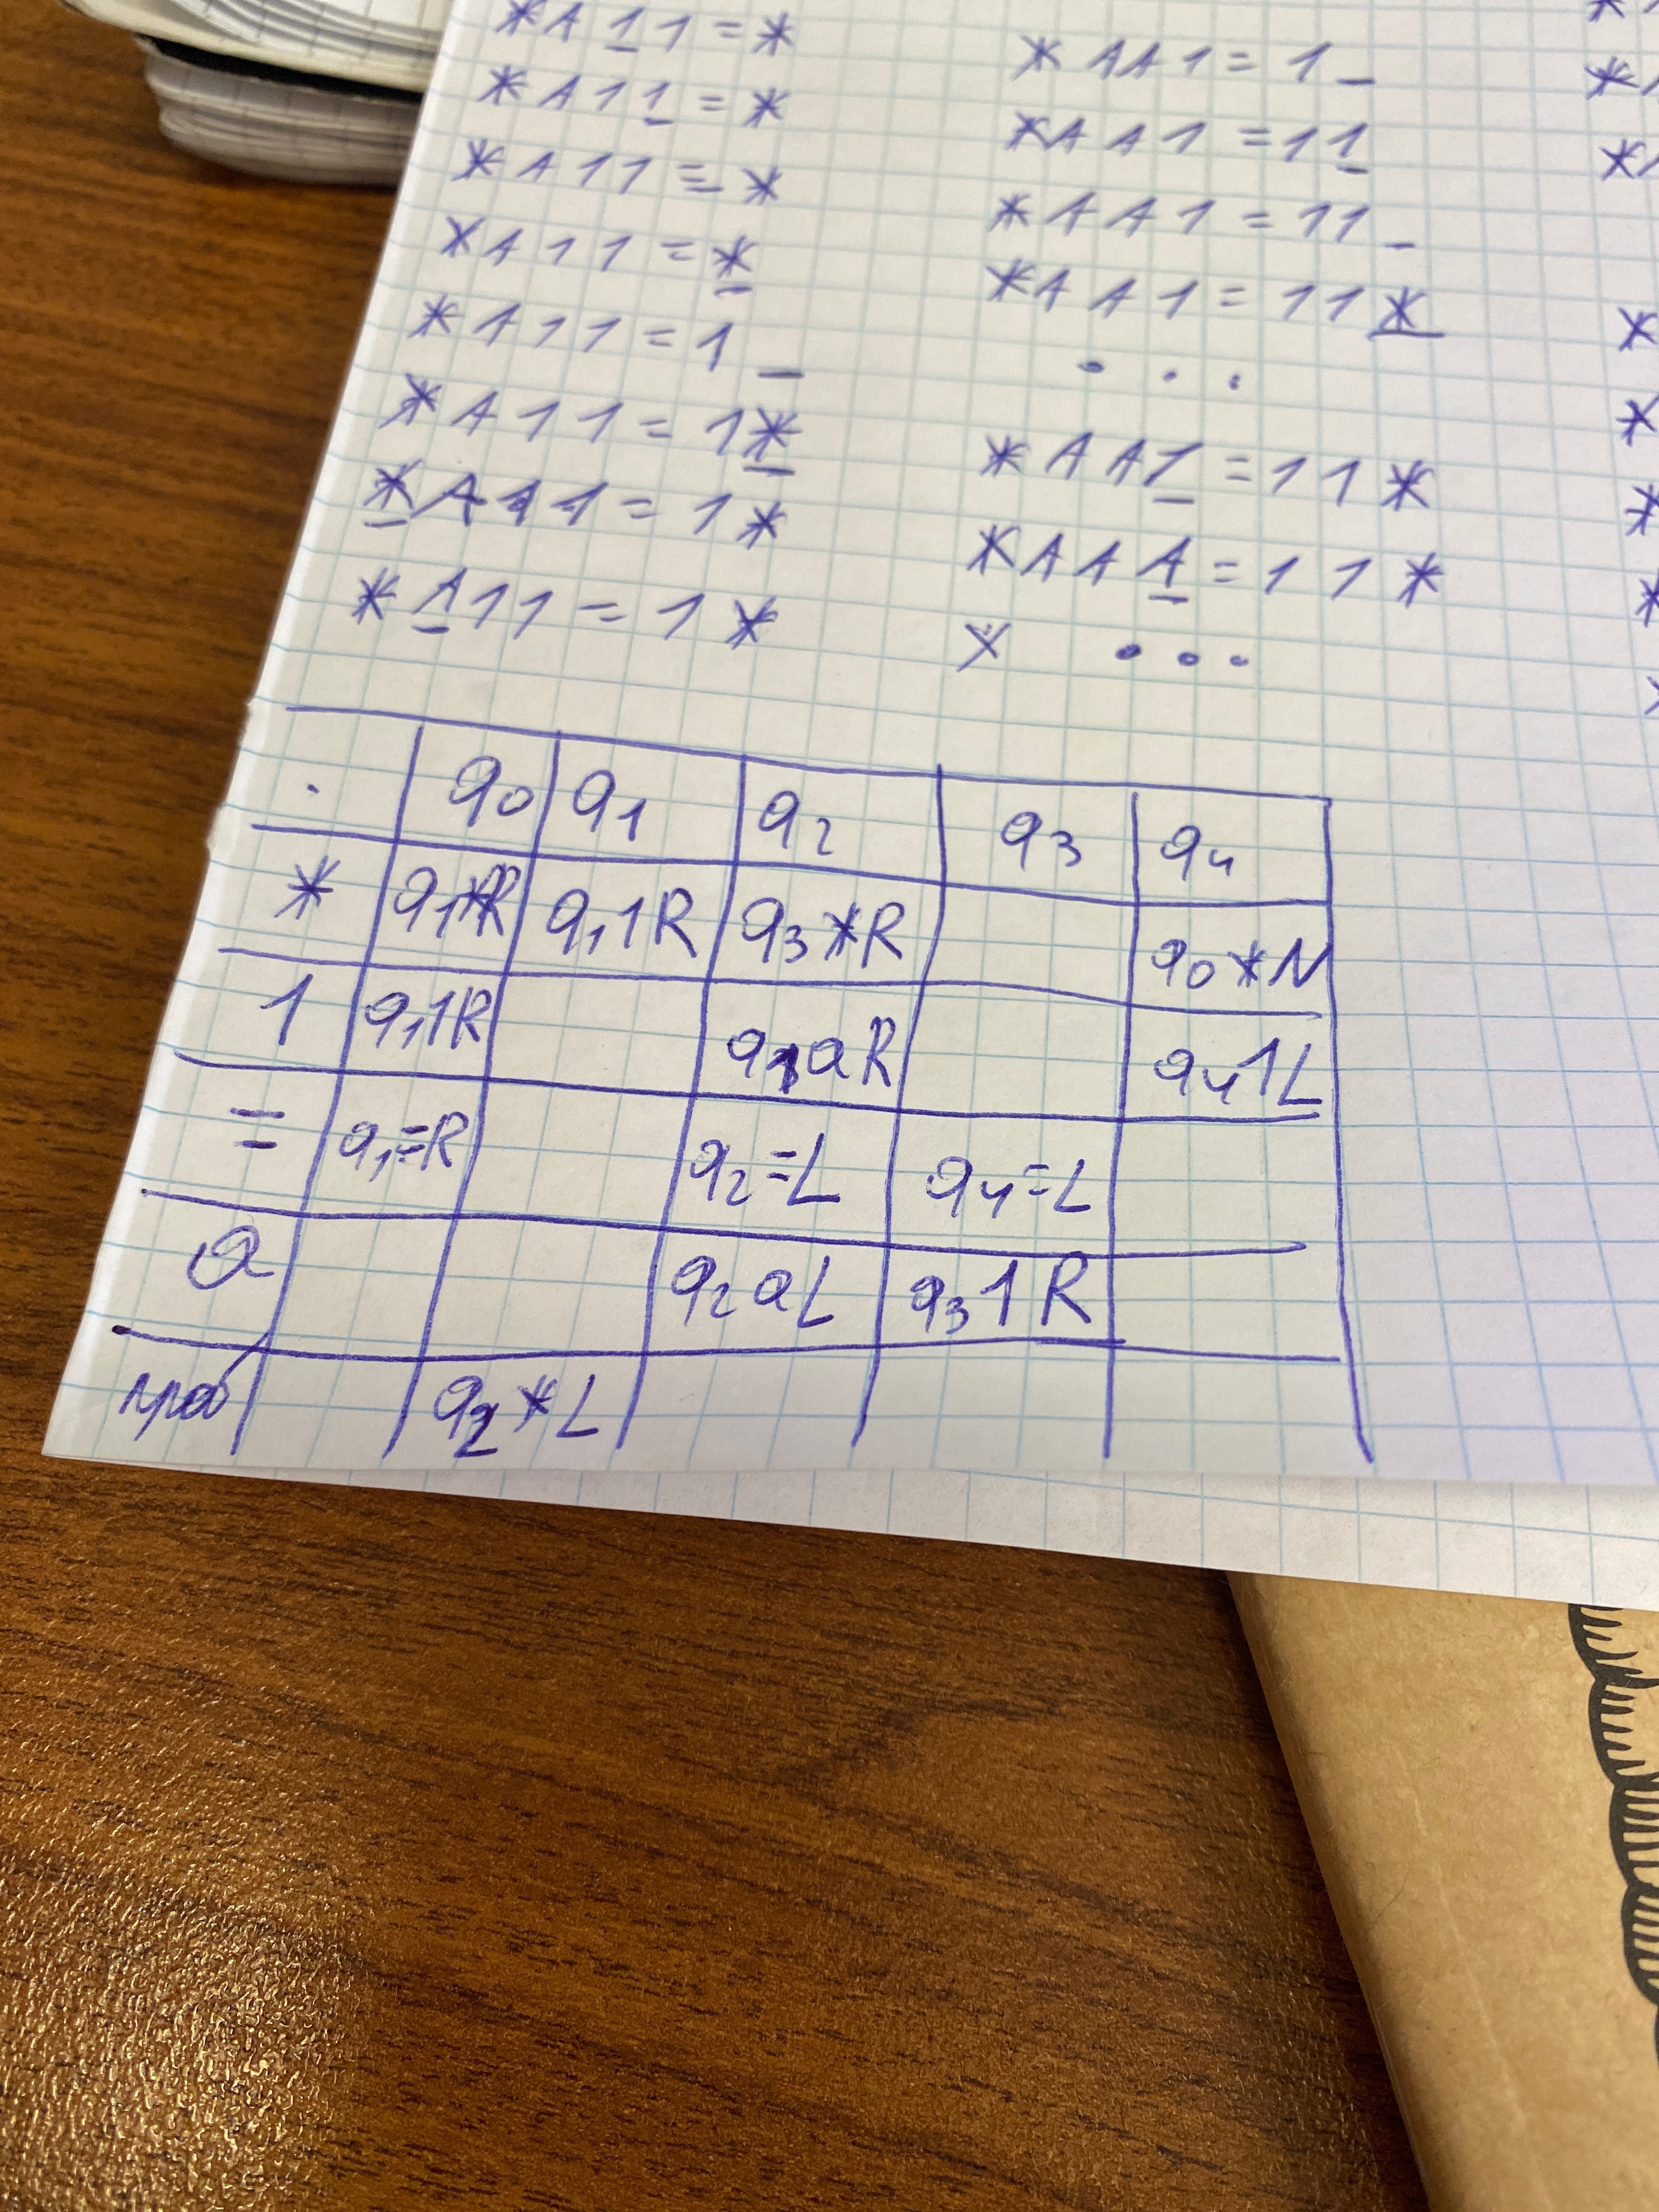 *A11=*
*A11=*
*A11=*
*A11=*
*A11=1_
*A11=1*
*A11=1*
*A11=1*
*AA1=1_
*AA1=11
*AA1=11_
*AA1=11*
...
*AA1=11*
*AAA=11*
* ...
. q0 q1 q2 q3 q4
* q1*R q11R q3*R q0*N
1 q11R q1aR q41L
= q1=R q2=L q4=L
a q2aL q31R
проб q2*L